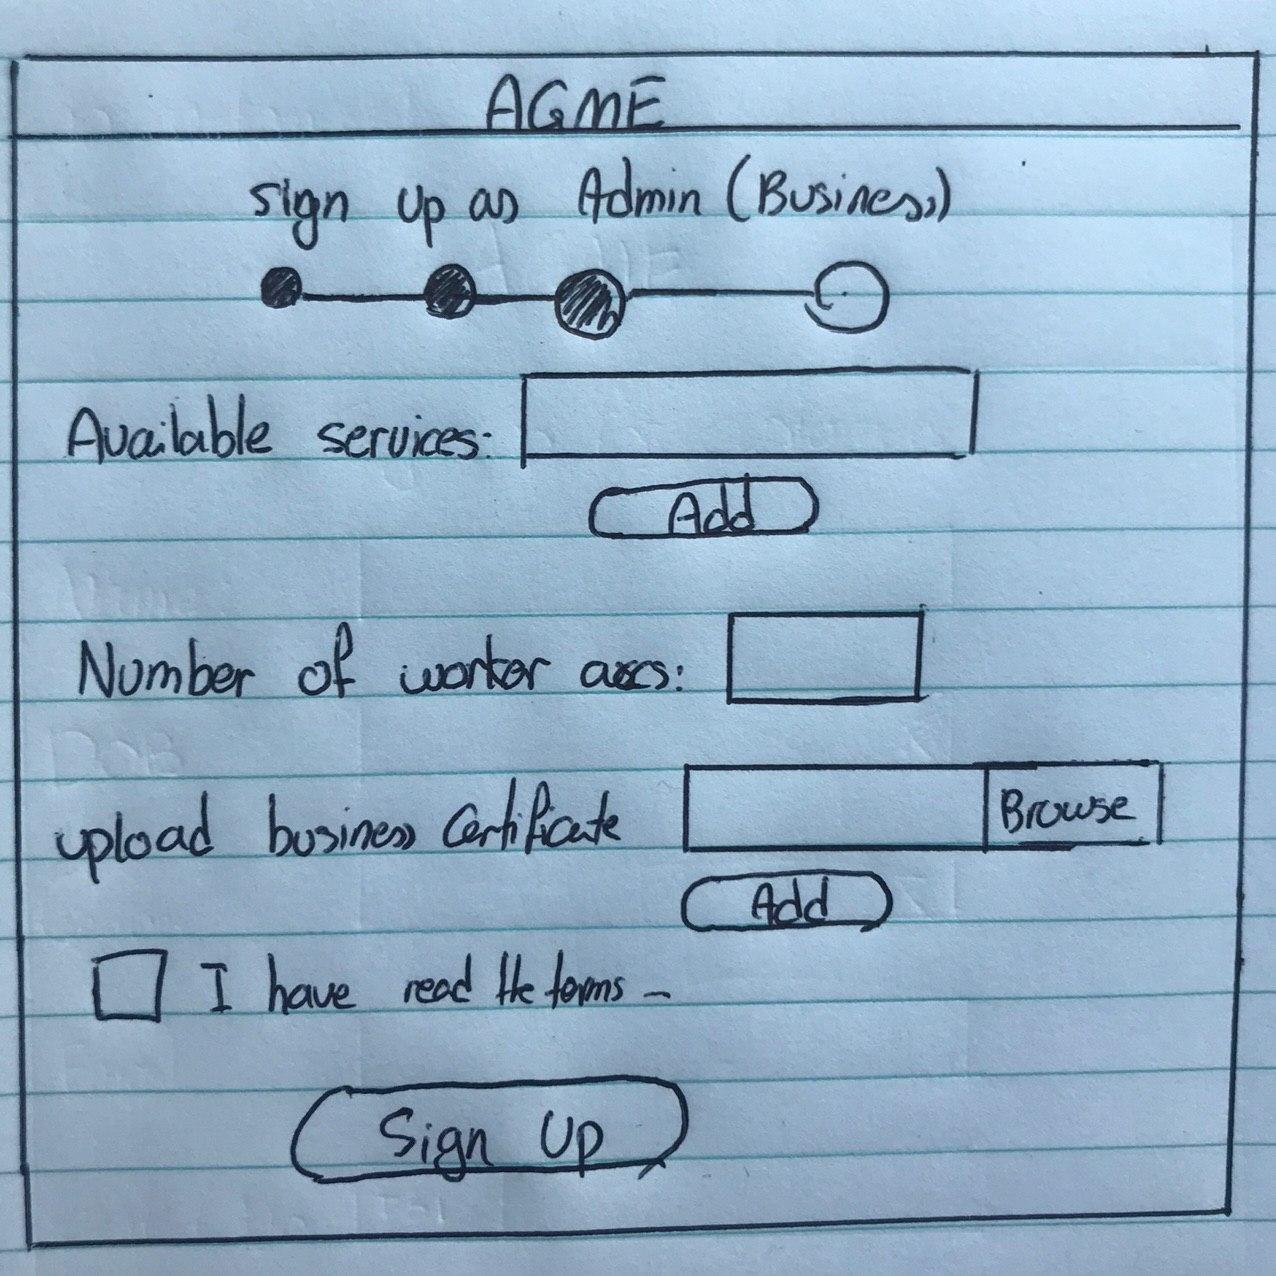 AGME
Sign up as Admin (Business)
Available services:
Add
Number of worker accs:
upload business Certificate
Browse
Add
I have read the terms -
Sign Up